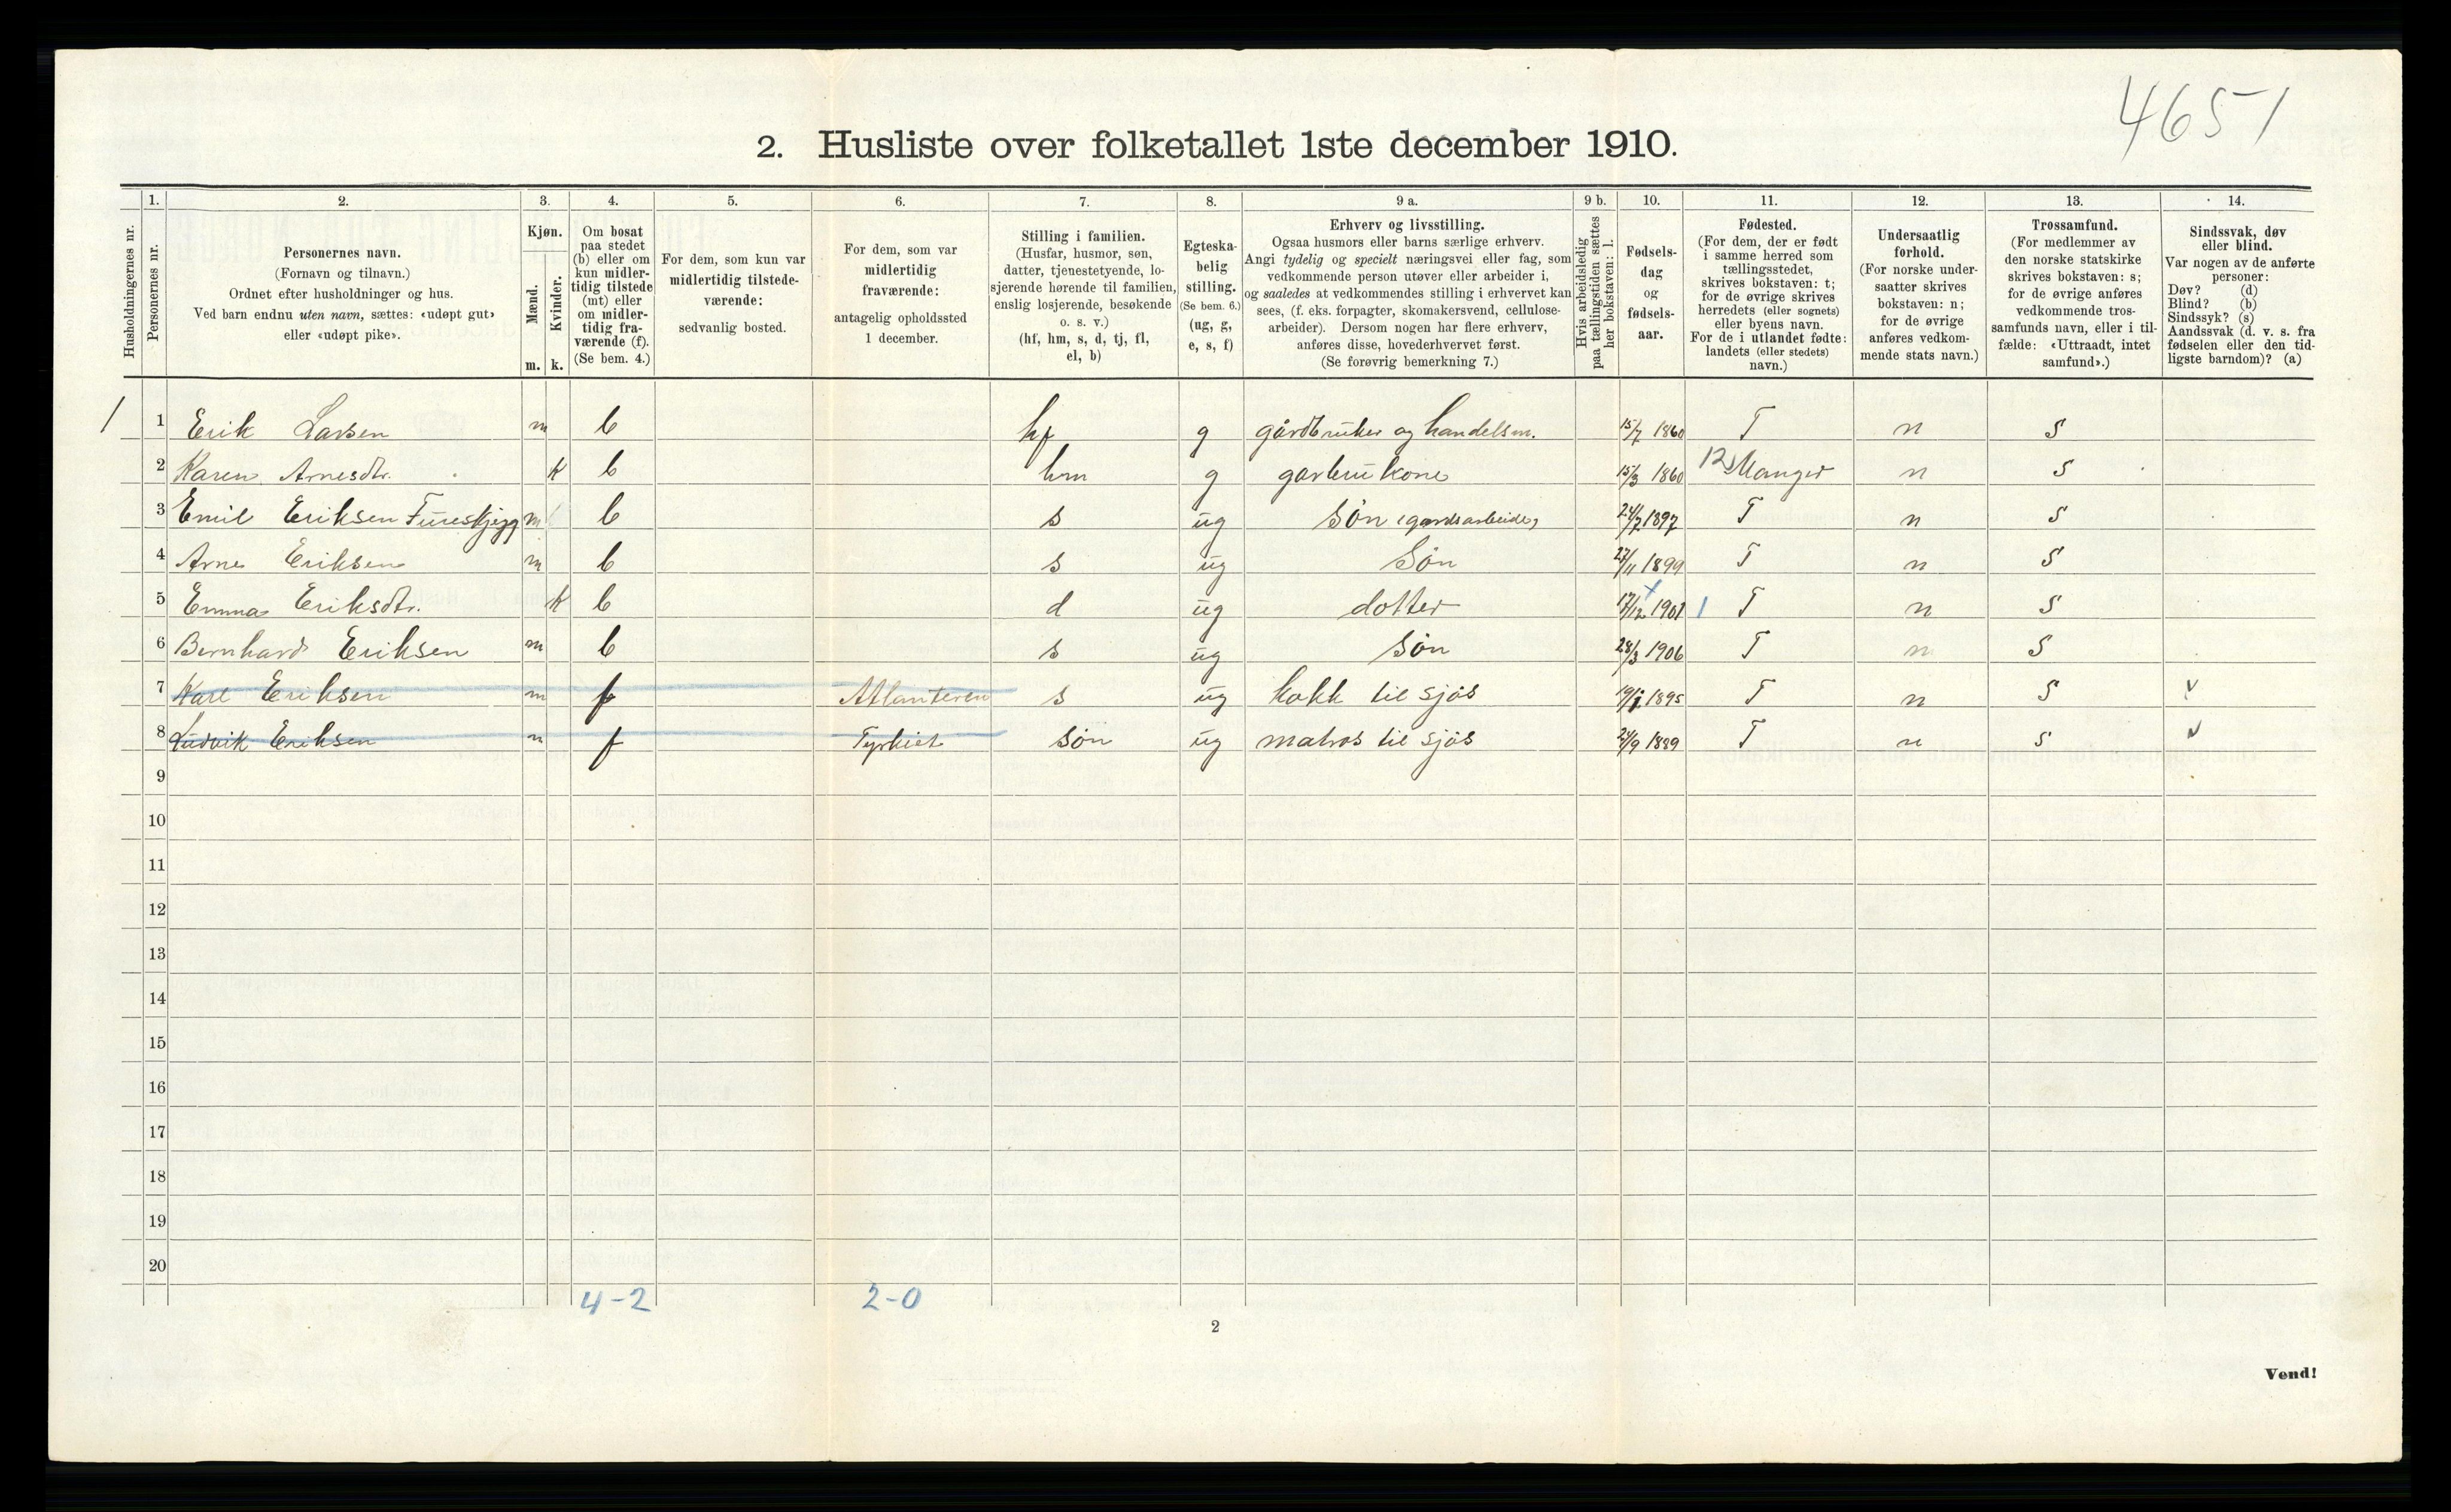 4651
2. Husliste over folketallet 1ste december 1910.
1. 2. 3. 4. 5. 6. 7. 8. 9 a. 9 b. 10. 11. 12. 13. 14.
Husholdningernes nr.
Personernes nr.
Personernes navn.
(Fornavn og tilnavn.)
Ordnet efter husholdninger og hus.
Ved barn endnu uten navn, sættes: «udøpt gut»
eller «udøpt pike».
Kjøn.
Mænd.
Kvinder.
m. k.
Om bosat
paa stedet
(b) eller om
kun midler-
tidig tilstede
(mt) eller
om midler-
tidig fra-
værende (f).
(Se bem. 4.)
For dem, som kun var
midlertidig tilstede-
værende:
sedvanlig bosted.
For dem, som var
midlertidig
fraværende:
antagelig opholdssted
1 december.
Stilling i familien.
(Husfar, husmor, søn,
datter, tjenestetyende, lo-
sjerende hørende til familien,
enslig losjerende, besøkende
o. s. v.)
(hf, hm, s, d, tj, fl,
el, b)
Egteska-
belig
stilling.
(Se bem. 6.)
(ug, g,
e, s, f)
Erhverv og livsstilling.
Ogsaa husmors eller barns særlige erhverv.
Angi tydelig og specielt næringsvei eller fag, som
vedkommende person utøver eller arbeider i,
og saaledes at vedkommendes stilling i erhvervet kan
sees, (f. eks. forpagter, skomakersvend, cellulose-
arbeider). Dersom nogen har flere erhverv,
anføres disse, hovederhvervet først.
(Se forøvrig bemerkning 7.)
Hvis arbeidsledig
paa tællingstiden sættes
her bokstaven: l.
Fødsels-
dag
og
fødsels-
aar.
Fødested.
(For dem, der er født
i samme herred som
tællingsstedet,
skrives bokstaven: t;
for de øvrige skrives
herredets (eller sognets)
eller byens navn.
For de i utlandet fødte:
landets (eller stedets)
navn.)
Undersaatlig
forhold.
(For norske under-
saatter skrives
bokstaven: n;
for de øvrige
anføres vedkom-
mende stats navn.)
Trossamfund.
(For medlemmer av
den norske statskirke
skrives bokstaven: s;
for de øvrige anføres
vedkommende tros-
samfunds navn, eller i til-
fælde: «Uttraadt, intet
samfund».)
Sindssvak, døv
eller blind.
Var nogen av de anførte
personer:
Døv? (d)
Blind? (b)
Sindssyk? (s)
Aandssvak (d. v. s. fra
fødselen eller den tid-
ligste barndom)? (a)
1 1 Erik Larsen m b hf g gårdbruker og handelsm. 15/7 1860 T n S
2 Karen Arnesdtr. k b hm g garbrukone 15/3 1860 12 Manger n S
3 Emil Eriksen Fureskjegg m b s ug Søn (gardsarbeide) 24/7 1897 T n S
4 Arne Eriksen m b s ug Søn 27/11 1899 T n S
5 Emma Eriksdtr. k b d ug dotter 17/12 1901 1 T n S
6 Bernhard Eriksen m b s ug Søn 28/3 1906 T n S
7 Karl Eriksen m f Atlanteren s ug kokk til sjøs 1895 T n S v
8 Ludvik Eriksen m f Tyrkiet søn ug matros til sjøs 24/9 1889 T n S v
9
10
11
12
13
14
15
16
17
18
19
20
4-2 2-0
2
Vend!